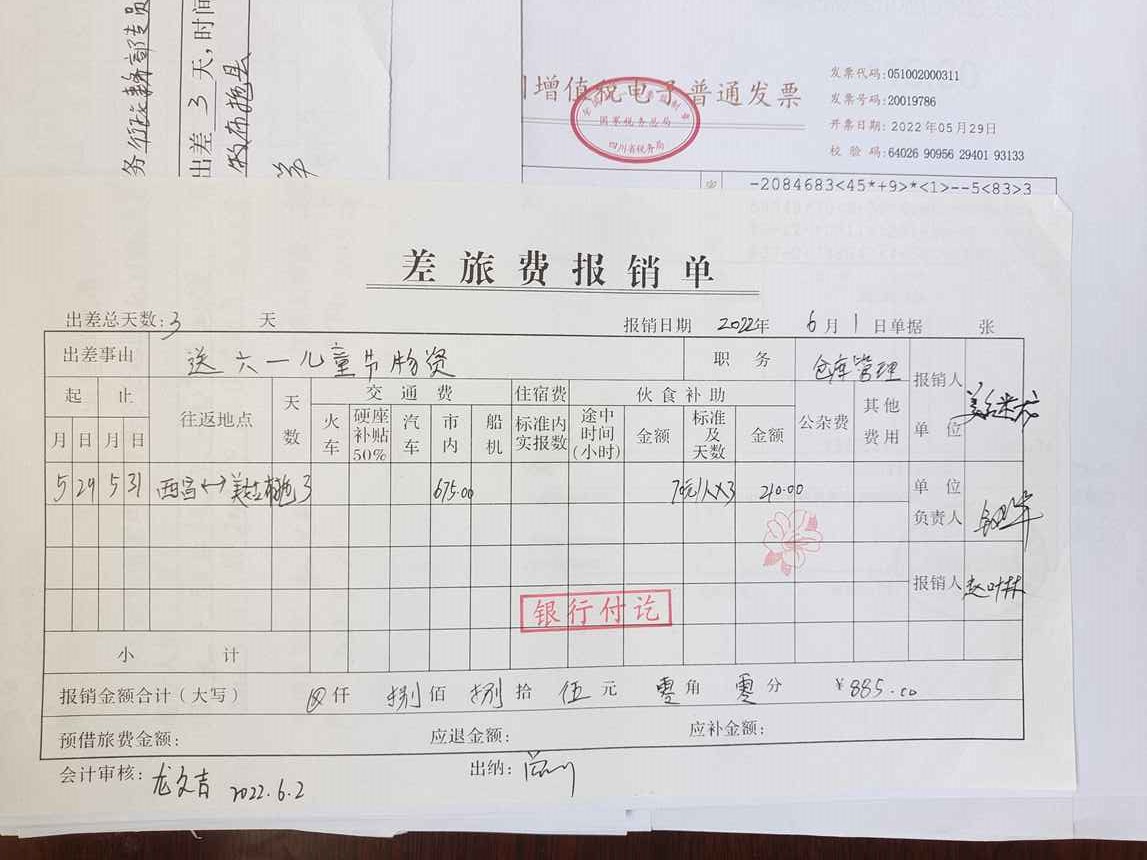 出差 3 天,时间
增值税电子普通发票
国家税务总局
四川省税务局
发票代码:051002000311
发票号码:20019786
开票日期:2022年05月29日
校验码:64026 90956 29401 93133
-2084683<45*+9>*<1>--5<83>3
差旅费报销单
出差总天数:3 天 报销日期 2022年 6月 1日单据 张
出差事由 送六一儿童节物资 职务 仓库管理 报销人单位
起 止 往返地点 天数 交通费 住宿费 伙食补助 公杂费 其他费用
月 日 月 日 火车 硬座补贴50% 汽车 市内 船机 标准内实报数 途中时间(小时) 金额 标准及天数 金额
5 29 5 31 西昌↔美姑 3 675.00 70元/人×3 210.00 单位负责人
报销人 赵叶林
银行付讫
小计
报销金额合计(大写) 仟 捌佰 捌拾 伍元 零角 零分 ¥885.00
预借旅费金额: 应退金额: 应补金额:
会计审核:龙文吉 2022.6.2 出纳: